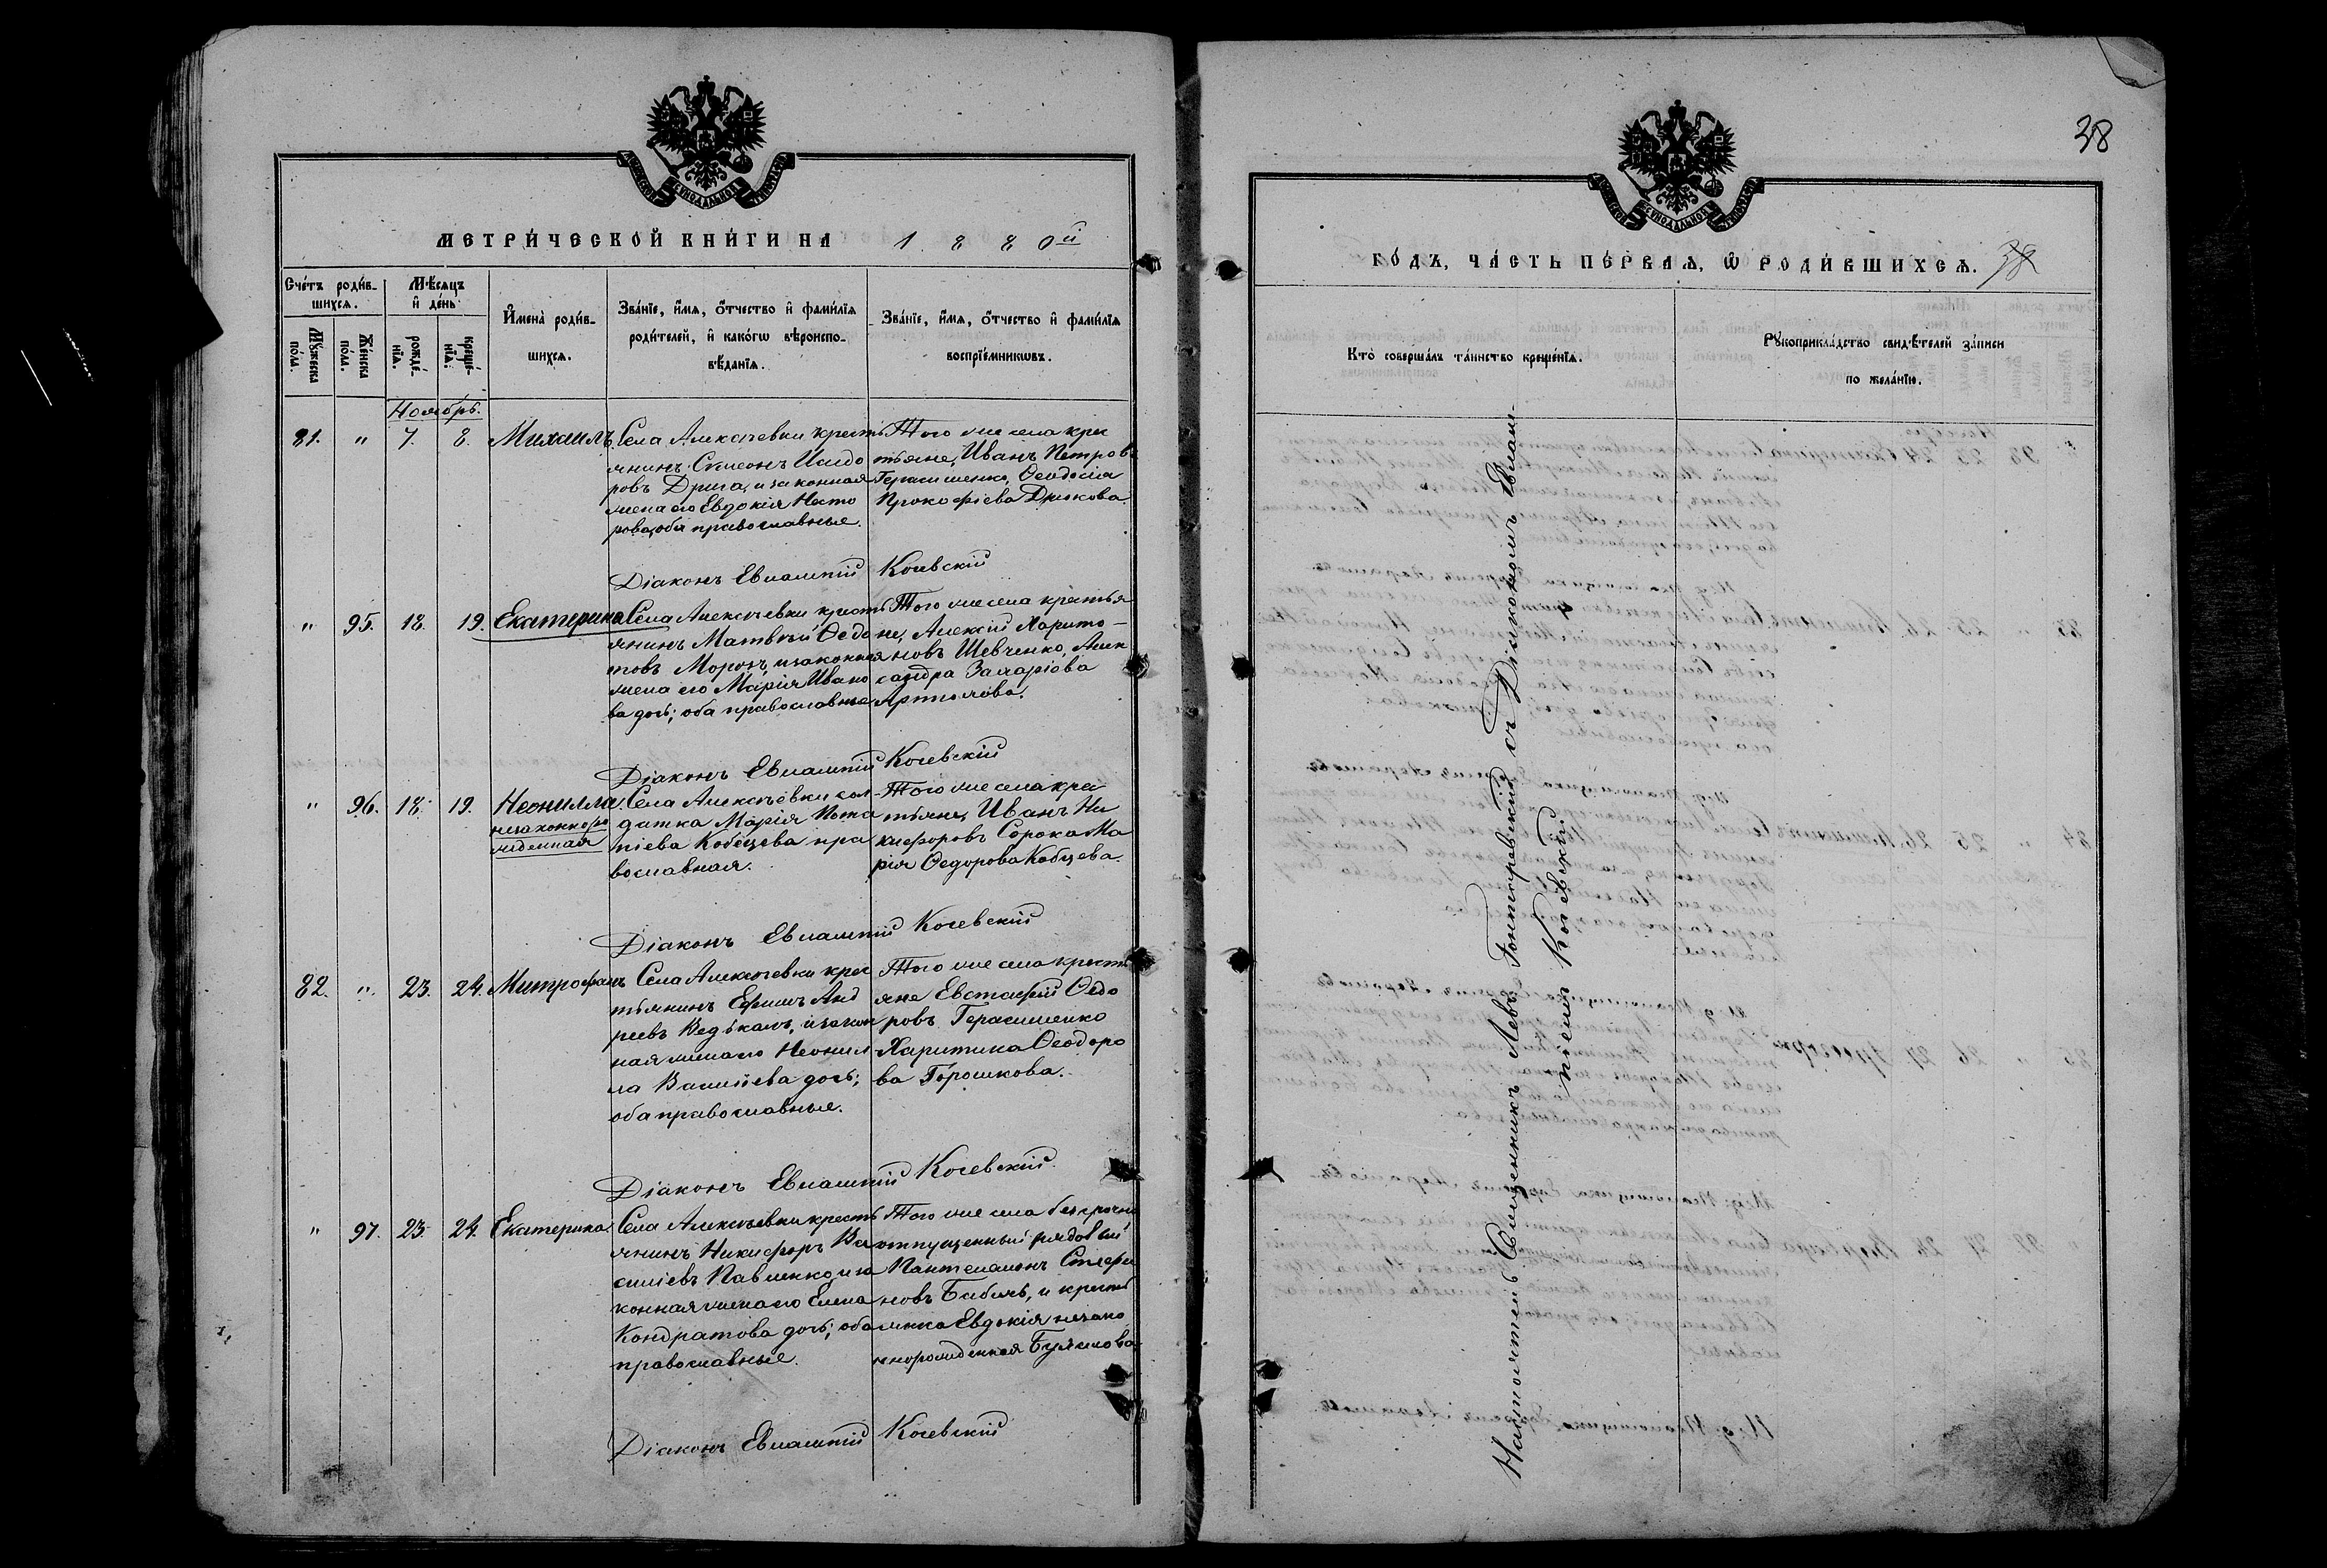 МОСКОВСКОЙ СѴНОДАЛЬНОЙ ТИПОГРАФІИ
МЕТРИ́ЧЕСКОЙ КНИ́ГИ НА 1880й
Сче́тъ роди́в-
шихсѧ.
Мꙋжеска по́ла.
Же́нска по́ла.
Мѣ́сѧцъ
и҆ де́нь
рожде́-нїѧ.
креще́-нїѧ.
И҆мена̀ роди́в-
шихсѧ.
Зва́нїе, и҆́мѧ, ѻ҆́тчество и҆ фами́лїѧ
роди́телей, и҆ како́гѡ вѣроиспо-
вѣ́данїѧ.
Зва́нїе, и҆́мѧ, ѻ҆́тчество и҆ фами́лїѧ
воспрїе́мникѡвъ.
Ноябрь.
81. " 7. 8. Михаилъ
Села Алексѣевки кресть
янинъ Симеонъ Исидо
ровъ Дрига, и законная
жена его Евдокія Несто
рова, оба православные.
Того же села крес
тьяне, Иванъ Петровъ
Герасименко, Ѳеодосія
Прокофіева Дрюкова
Діаконъ Евлампій Когевскій
" 95. 18. 19. Екатерина
Села Алексѣевки кресть
янинъ Матвѣй Ѳедо
товъМорозъ, и законная
жена его Марія Ивано
ва дочь; оба православные
Того же села крестья
не, Алексій Харито-
новъ Шевченко, Алек
сандра Захаріева
Діаконъ Евлампій Когевскій
" 96. 18. 19. Неонилла
незаконноро
жденная
Села Алексѣевки сол-
датка Марія Пота
піева Кобецева пра
вославная.
Того же села кре
стьяне, Иванъ Ни
кифоровъ Сорока Ма
рія Ѳедорова Кобцева.
Діаконъ Евлампій Когевскій
82. " 23. 24. Митрофанъ
Села Алексѣевки крес
тьянинъ Ефимъ Анд
реевъ и закон
ная жена его Неонил
ла Василіева дочь;
оба православные.
Того же села кресть
яне Евстафій Ѳедо
ровъ Герасименко
Харитина Ѳеодоро
ва Горошкова.
Діаконъ Евлампій Когевскій.
" 97. 23. 24. Екатерина
Села Алексѣевки кресть
янинъ Никифоръ Ва
силіевъ Павленко, и за
конная жена его Елена
Кондратова дочь; оба
православные.
Того же села безсрочно
отпущенный рядовый
Пантелемонъ Стефа
новъ Бабичъ, и кресть
янка Евдокія незако
ннорожденная
Діаконъ Евлампій Когевскій
38
МОСКОВСКОЙ СѴНОДАЛЬНОЙ ТИПОГРАФІИ
ГО́ДЪ, ЧА́СТЬ ПЕ́РВАѦ, Ѡ҆ РОДИ́ВШИХСѦ. 38
Кто̀ соверша́лъ та́инство креще́нїѧ.
Рꙋкоприкла́дство свидѣ́телей за́писи
по жела́нїю.
Настоятель Священникъ Левъ съ Діакономъ Евлам-
піемъ Когевскій